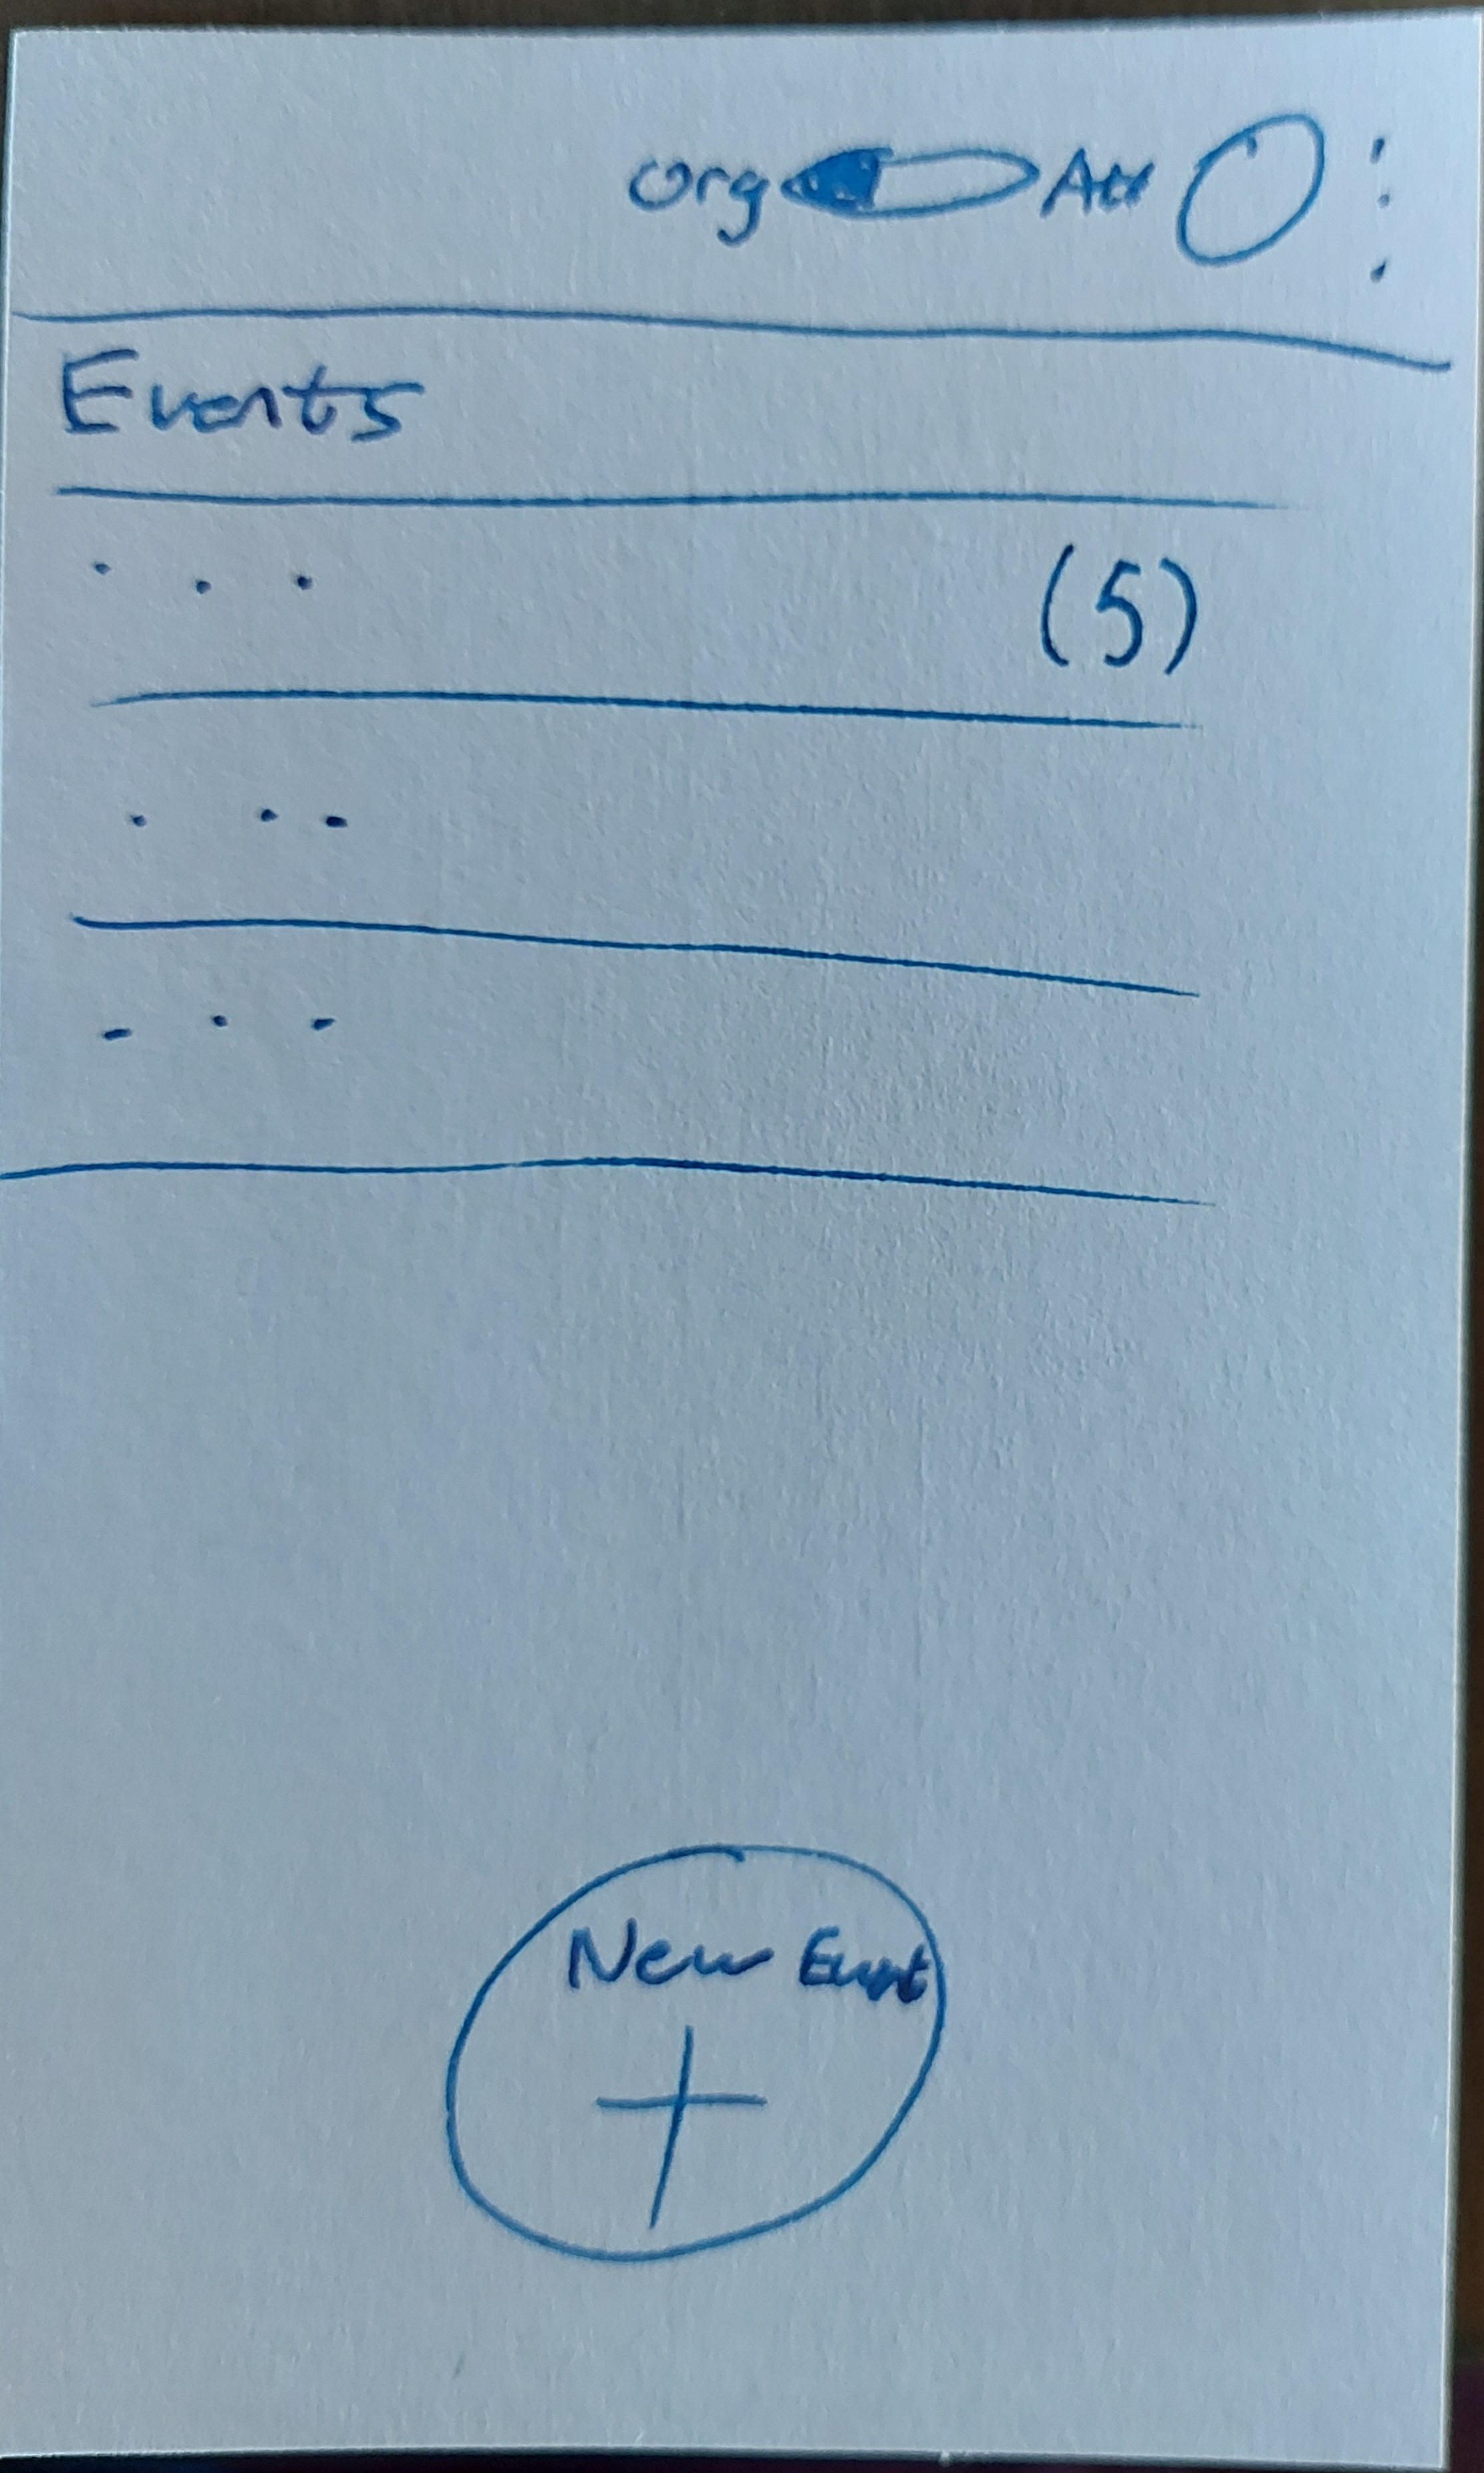 Org Att
Events
. . . (5)
. . .
. . .
New Event
+